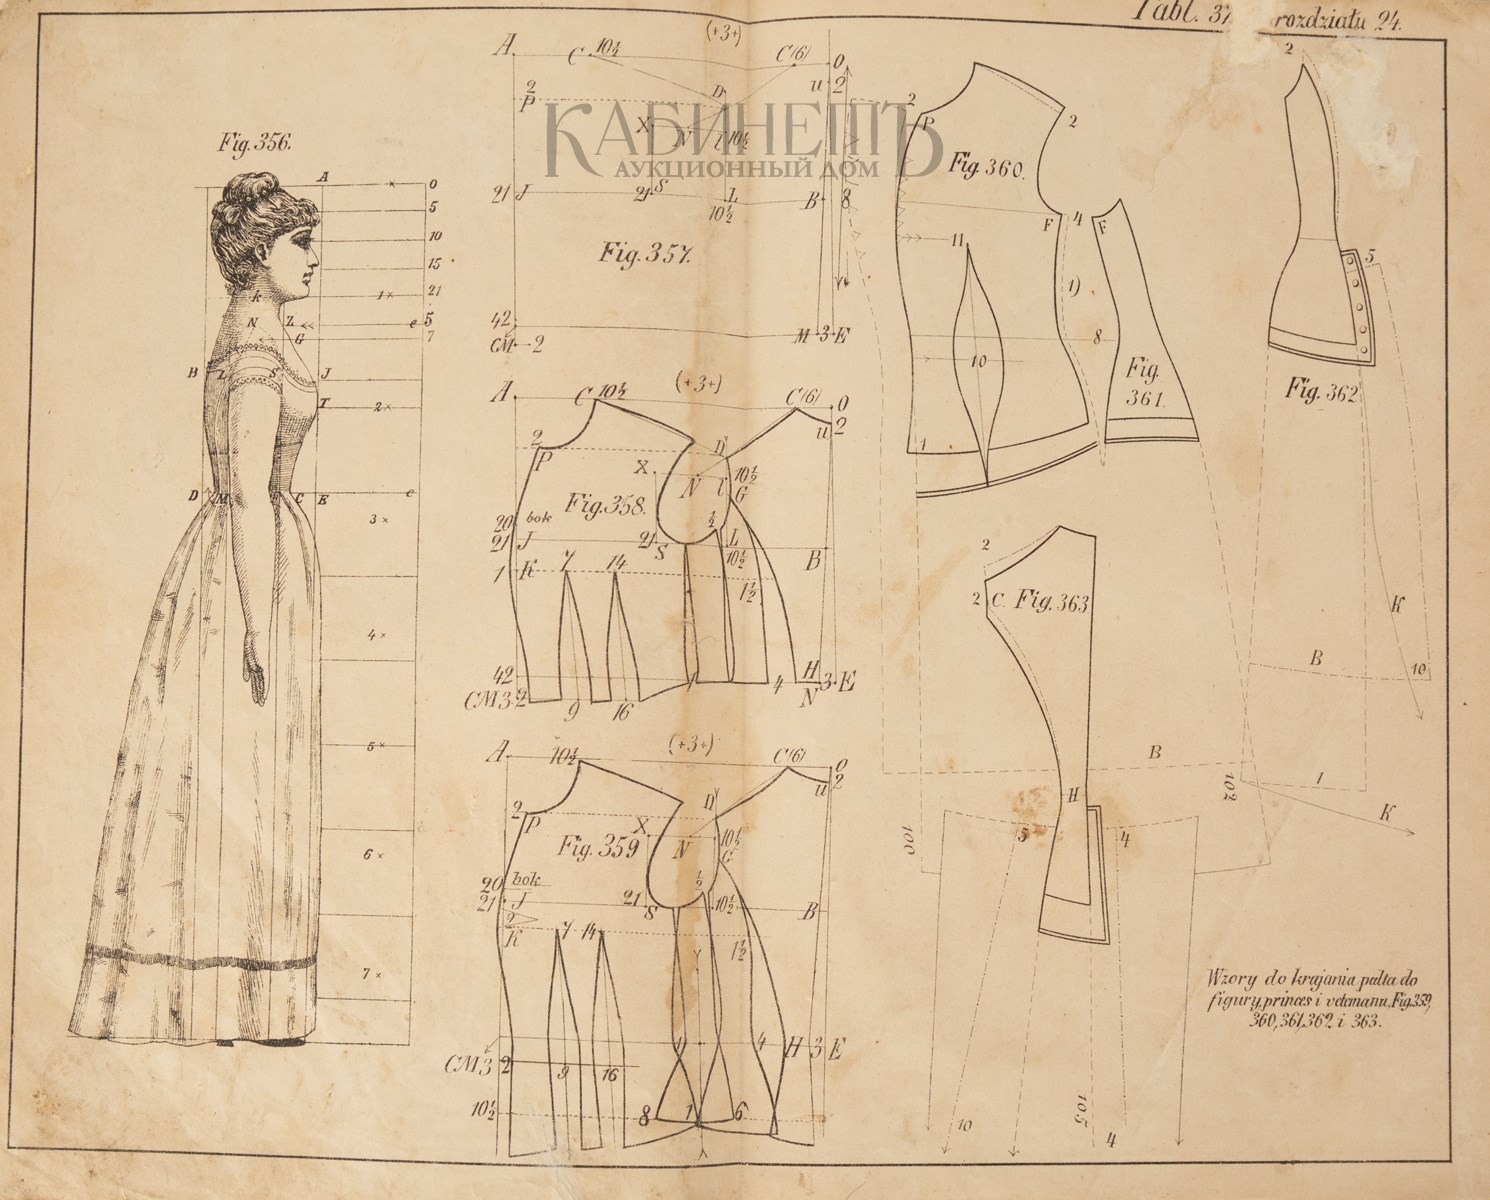 Tabl. 37 rozdziału 24.
КАБИНЕТЪ
АУКЦИОННЫЙ ДОМ
Fig. 356.
A × 0
5
10
15
k 1× 21
N Z e 5
G 7
B L S J
T 2×
D M C E e
3×
4×
5×
6×
7×
A. C 10½ (+3+) C(6) 0
u 2
2 P D
X N l 10½
21 J 21 S L B 8
10½
Fig. 357.
42 M 3 E
CM 2
A. C 10½ (+3+) C(6) 0
u 2
2 P D
X N l 10½
G
Fig. 358.
20 bok ½
21 J 21 S L B
10½
1 K 7 14 1½
42 4 H 3 E
CM 3 2 9 16 N
A 10½ (+3+) C(6) 0
u 2
2 P D
X N 10½
G
Fig. 359
20 bok ½
21 J 21 S 10½ B
2 K 7 14 1½
4 H 3 E
CM 3 2 9 16
10½ 8 1 6
2 P 2
Fig. 360.
F 4
11
1)
10 8
1
F
Fig.
361.
2
5
Fig. 362
K
B 10
2
2 C. Fig. 363
B
102 1
K
H
100 5 4
10 105 4
Wzory do krajania palta do
figury, princes i vetemanu, Fig. 359,
360, 361, 362 i 363.